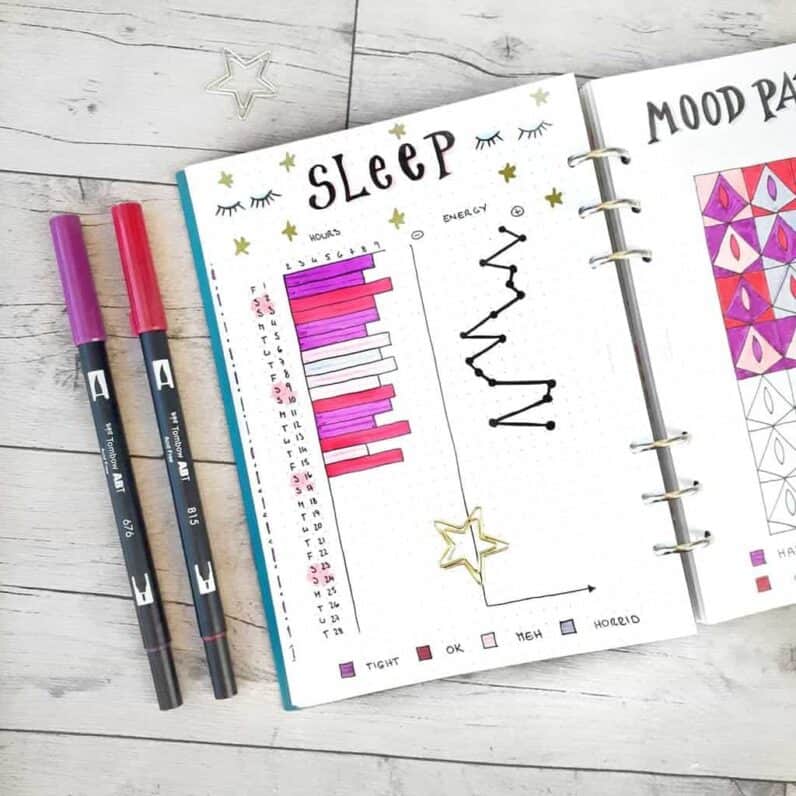 SLEEP
HOURS
ENERGY
- +
2 3 4 5 6 7 8 9
F 1
S 2
S 3
M 4
T 5
W 6
T 7
F 8
S 9
S 10
M 11
T 12
W 13
T 14
F 15
S 16
S 17
M 18
T 19
W 20
T 21
F 22
S 23
S 24
M 25
T 26
W 27
T 28
TIGHT OK MEH HORRID
MOOD PA
HA
Tombow ABT
676
Tombow ABT
815